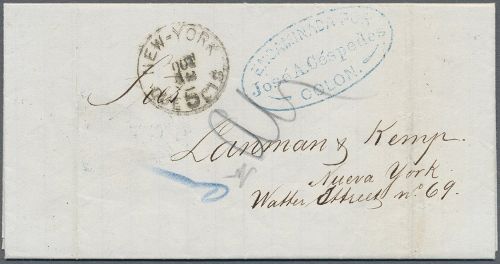 NEW-YORK
5 CTS
ENCAMINADA POR
José A. Céspedes
COLON.
Lanman & Kemp.
Nueva York
Watter Street nº 69.